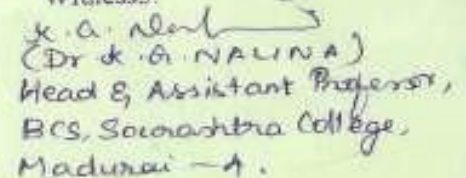 Witness:
K. G. Nal
(Dr K. G. NALINA)
Head & Assistant Professor,
BCS, Sourashtra College,
Madurai - 4.